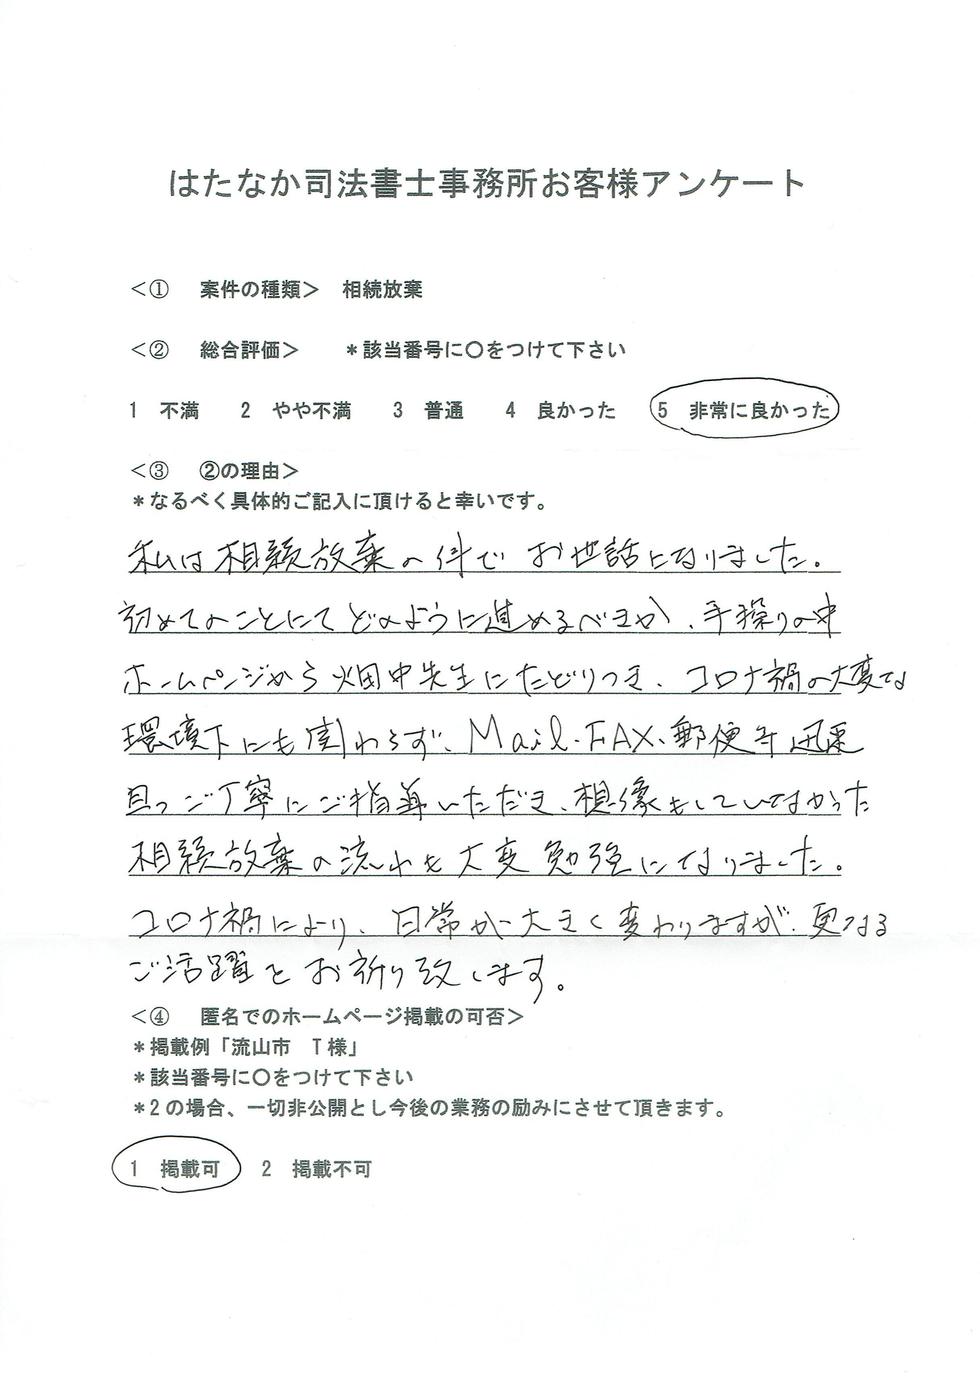 はたなか司法書士事務所お客様アンケート
＜①　案件の種類＞　相続放棄
＜②　総合評価＞　　＊該当番号に〇をつけて下さい
1　不満　　2　やや不満　　3　普通　　4　良かった　　5　非常に良かった
＜③　②の理由＞
＊なるべく具体的ご記入に頂けると幸いです。
私は相続放棄の件で お世話になりました。
初めてのことにてどのように進めるべきか、手操りの中
ホームページから畑中先生にたどりつき、コロナ禍の大変な
環境下にも関わらず、Mail・FAX・郵便等迅速
且つご丁寧にご指導いただき、想像もしていなかった
相続放棄の流れも大変勉強になりました。
コロナ禍により、日常が大きく変わりますが、更なる
ご活躍をお祈り致します。
＜④　匿名でのホームページ掲載の可否＞
＊掲載例「流山市　T様」
＊該当番号に〇をつけて下さい
＊2の場合、一切非公開とし今後の業務の励みにさせて頂きます。
1　掲載可　　2　掲載不可